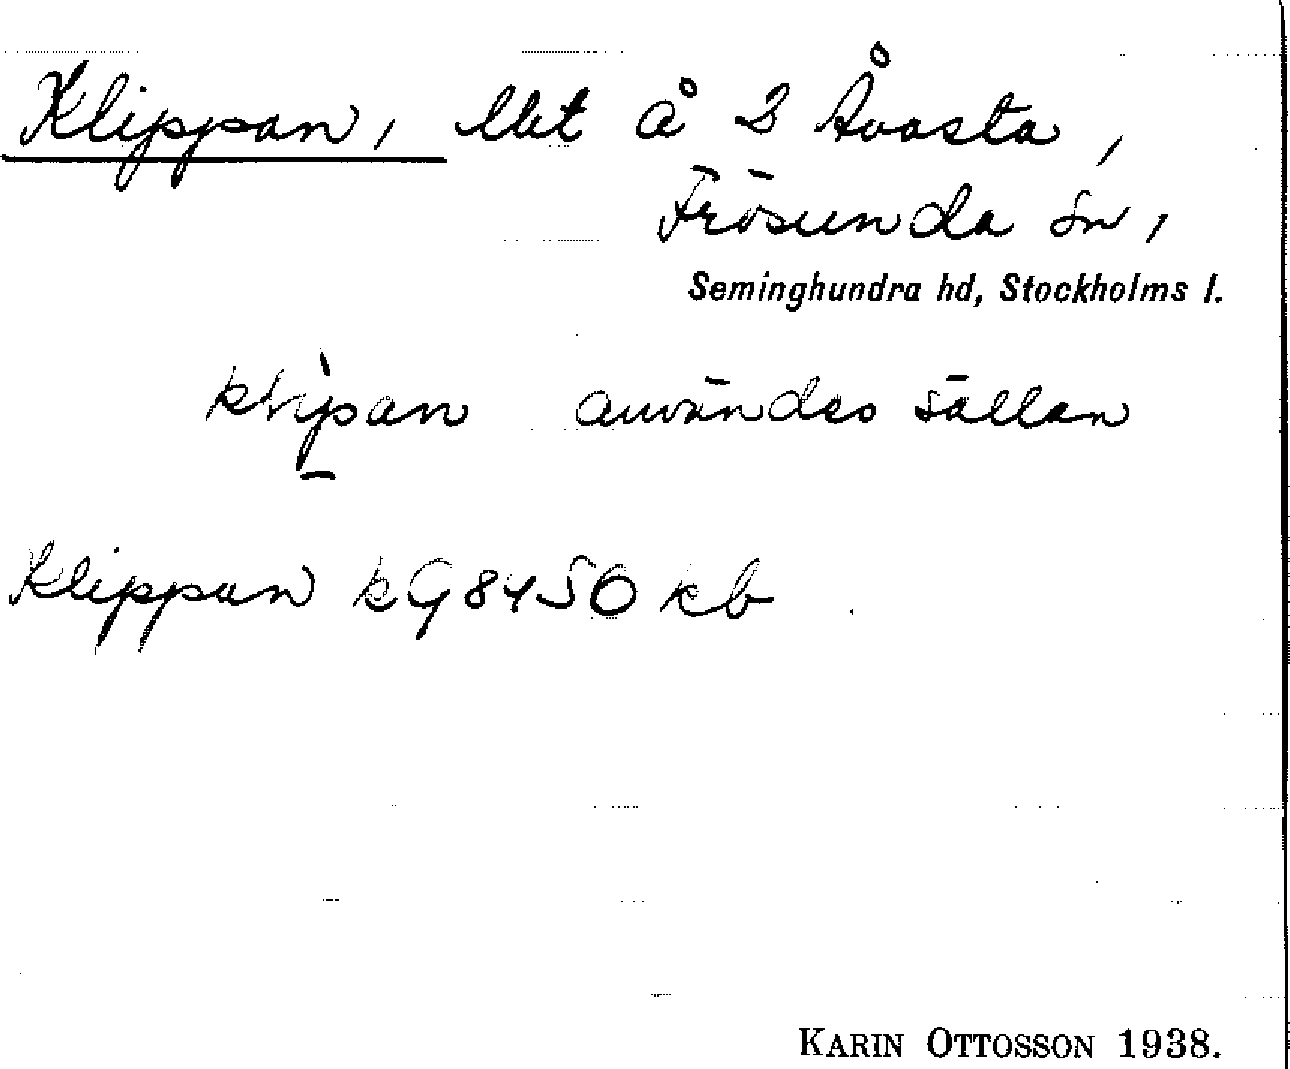 Klippan, lht å 2 Åvasta,
Frösunda sn,
Seminghundra hd, Stockholms l.
klìp̱an användes sällan
Klippan kG8450 kb
KARIN OTTOSSON 1938.